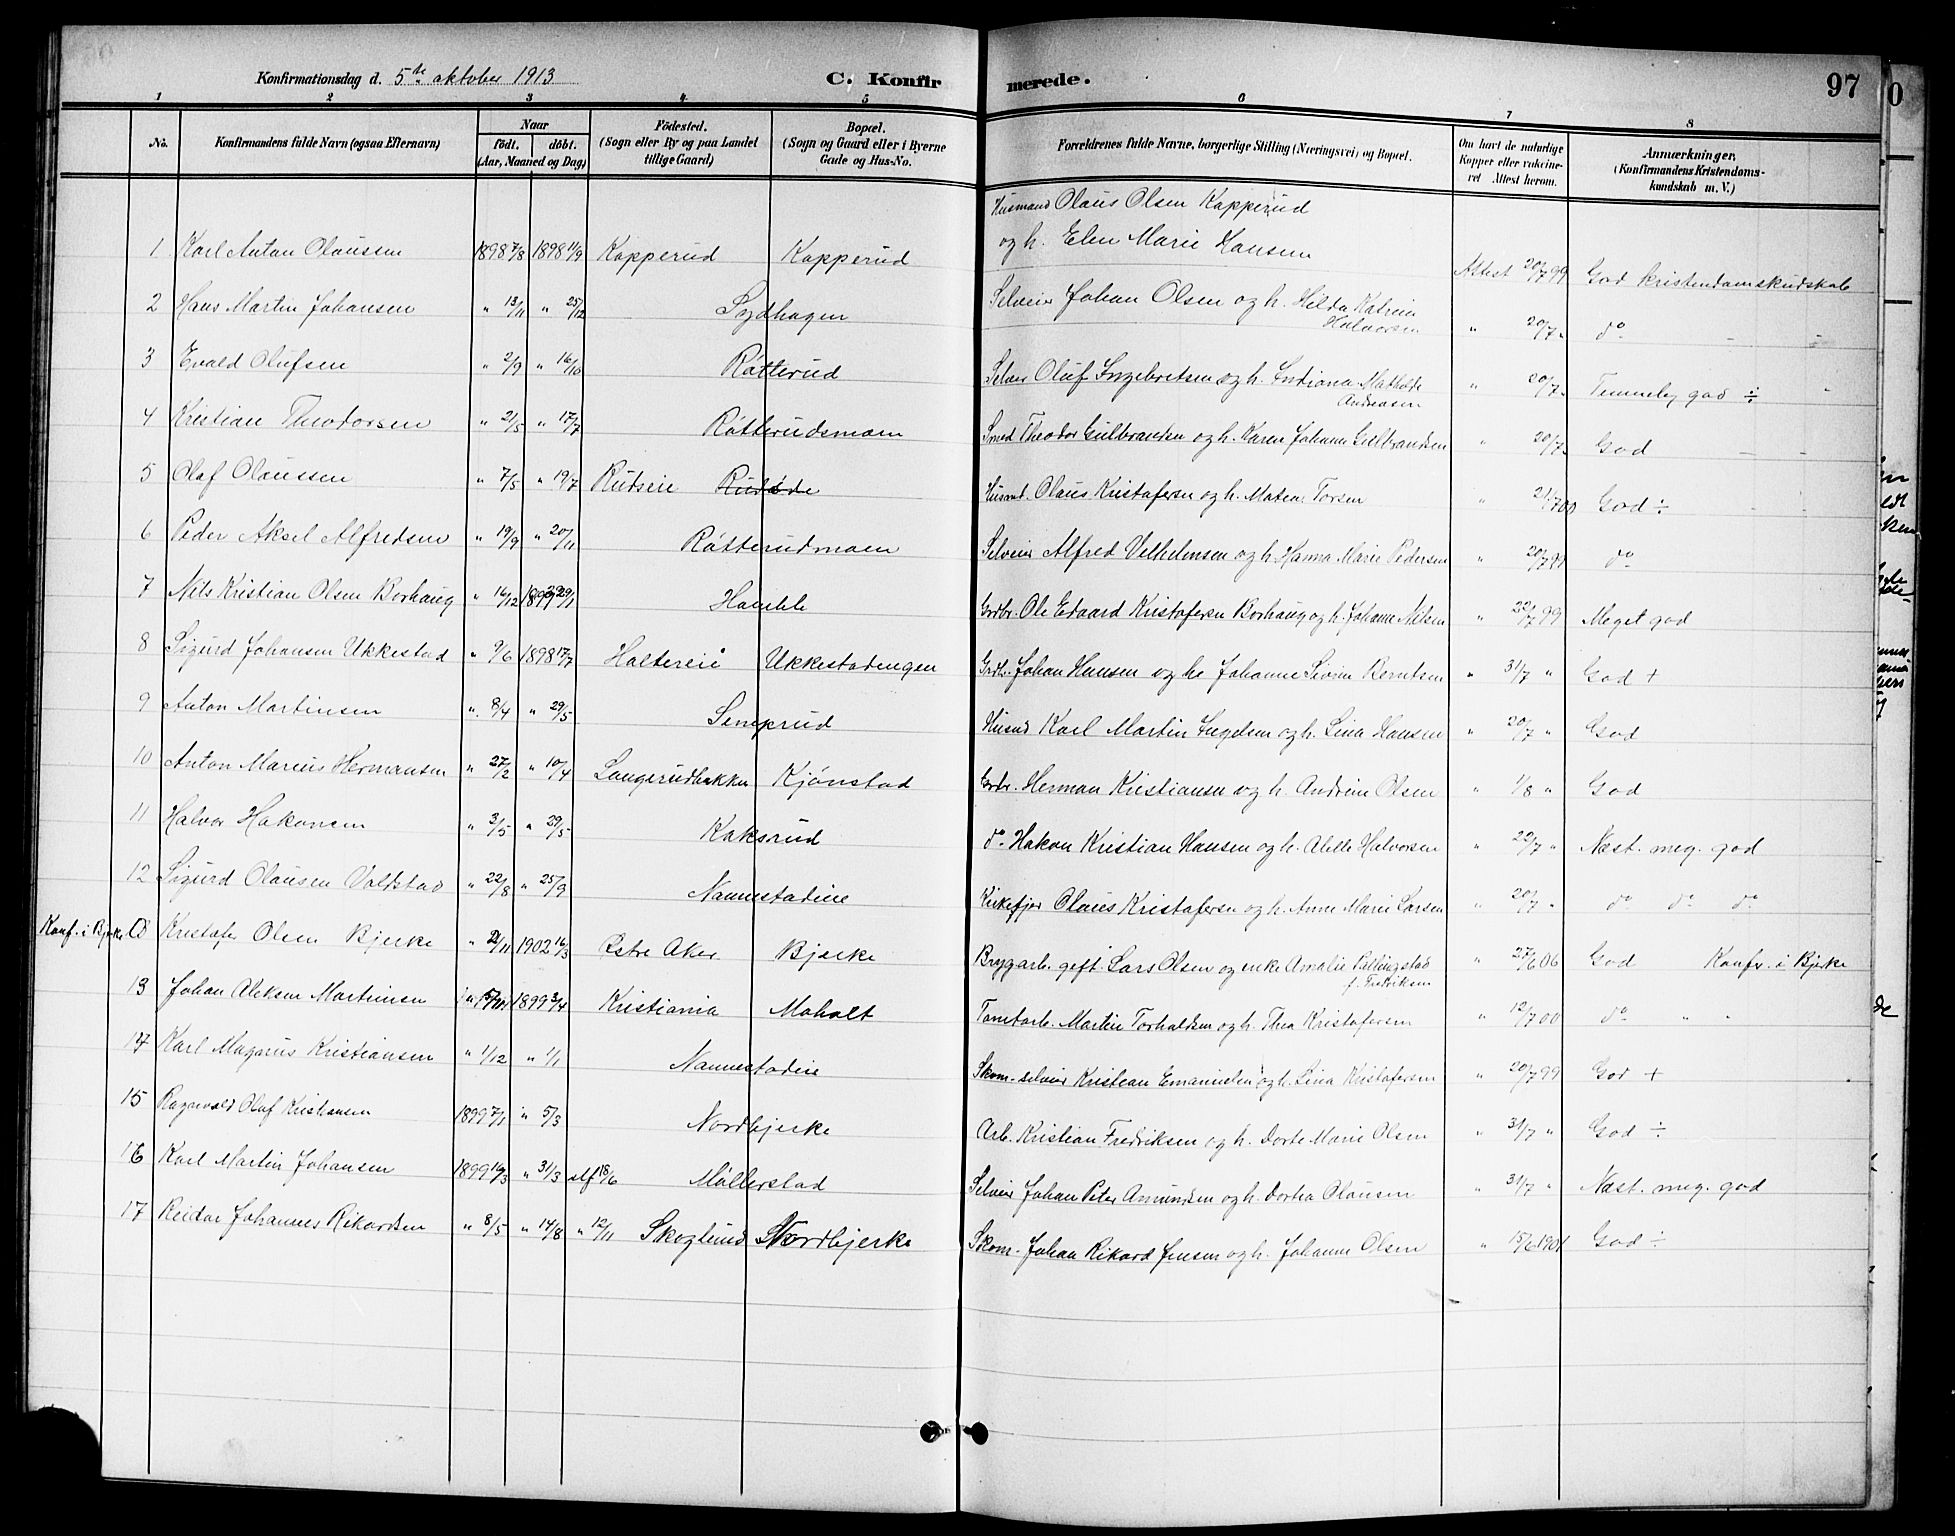 Konfirmationsdag d. 5te oktober 1913
C. Konfirmerede.
97
1 2 3 4 5 6 7 8
No.
Konfirmandens fulde Navn (ogsaa Efternavn)
Naar
födt. döbt.
(Aar, Maaned og Dag)
Födested.
(Sogn eller By og paa Landet tillige Gaard)
Bopæl.
(Sogn og Gaard eller i Byerne Gade og Hus-No.
Forældrenes fulde Navne, borgerlige Stilling (Næringsvei) og Bopæl.
Om havt de naturlige Kopper eller vakcineret Attest herom.
Anmærkninger,
(Konfirmandens Kristendomskundskab m. V.)
Husmand Olaus Olsen Kapperud
1 Karl Anton Olaussen 1898 7/8 1898 11/9 Kapperud Kapperud og h. Elen Marie Hansen Attest 20/7 99 God kristendomskudskab
2 Hans Martin Johansen " 13/11 " 25/12 Sydhagen Selveier Johan Olsen og h. Hilda Katrine Halvorsen " 20/7 " do
3 Evald Olufsen " 2/9 " 16/10 Råtterud Selveier Oluf Ingebretsen og h. Indiana Mathilde Andreasen " 20/7 " Temmelig god ÷
4 Kristian Theodorsen " 21/5 " 17/7 Råtterudsmoen Smed Theodor Gulbrandsen og h. Karen Johanne Gulbrandsen " 20/7 " God
5 Olaf Olaussen " 7/5 " 19/7 Rudseie Husmd. Olaus Kristofersen og h. Matea Torsen " 21/7 00 God ÷
6 Peder Aksel Alfredsen " 19/9 " 20/11 Råtterudmoen Selveier Alfred Vilhelmsen og h. Hanna Marie Pedersen " 20/7 99 do
7 Nils Kristian Olsen Borhaug " 16/12 1899 29/1 Grdbr. Ole Edvard Kristofersen Borhaug og h. Johanne Nilsen " 22/7 99 Meget god
8 Sigurd Johansen Ukkestad " 9/6 1898 17/7 Haltereie Ukkestadengen Grdbr. Johan Hansen og h. Johanne Sivrine Berntsen " 31/7 " God +
9 Anton Martinsen " 8/4 " 29/5 Semprud Husmd Karl Martin Engelsen og h. Lina Hansen " 20/7 " God
10 Anton Marius Hermansen " 27/2 " 10/4 Langerudbakken Kjönstad Grdbr. Herman Kristiansen og h. Andrine Olsen " 1/8 " God
11 Halvor Hakonsen " 3/5 " 29/5 Kaksrud do Hakon Kristian Hansen og h. Alette Halvorsen " 22/7 " Næst. meg. god
12 Sigurd Olausen Valstad " 22/8 " 25/9 Nannestadeie Olaus Kristofersen og h. Anne Marie Larsen " 20/7 " do do do
Konf. i Bjerke Kristofer Olsen Bjerke " 1902 16/3 Østre Aker Bjerke Brygarb. gift. Lars Olsen og enke Amalie f. Fredriksen " 27/6 06 God Konfr. i Bjerke
13 Johan Aleksen Martinsen 1899 3/4 Kristiania Moholt Martin Torhaldsen og h. Thea Kristofersen " 12/7 00 do " "
14 Karl Magnus Kristiansen " 1/12 " 1/1 Nannestadeie Skom. selveier Kristian Emanuelsen og h. Lina Kristofersen " 20/7 99 God +
15 Ragnvald Oluf Kristiansen 1899 7/1 " 5/3 Nordbjerke Arb. Kristian Fredriksen og h. Dorte Marie Olsen " 31/7 " God ÷
16 Karl Martin Johansen 1899 16/3 " 31/3 18/6 Møllerstad Selveier Johan Peter Amundsen og h. Dortea Olausen " 31/7 " Næst. meg. god
17 Reidar Johannes Rikardsen " 8/5 " 14/8 " 12/11 Skoglund Nordbjerke Skom. Johan Rikard Jensen og h. Johanne Olsen " 15/6 1901 God ÷